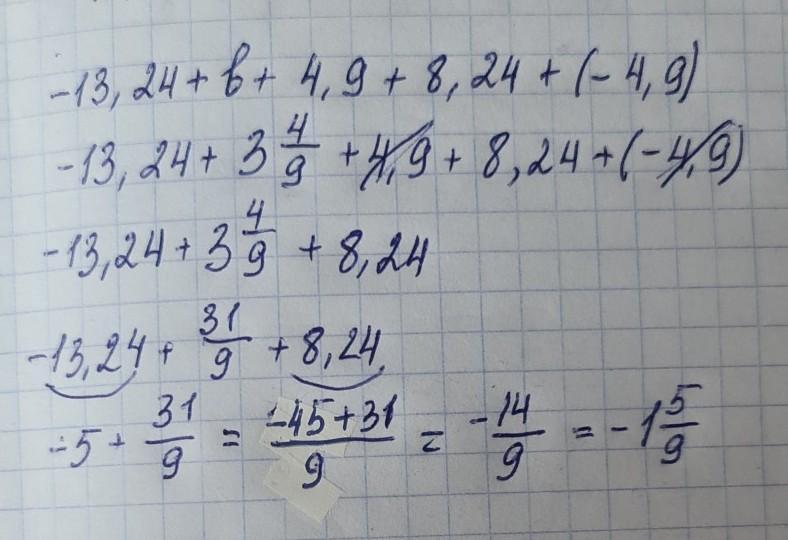 -13,24 + в + 4,9 + 8,24 + (-4,9)
-13,24 + 3 4/9 + 4,9 + 8,24 + (-4,9)
-13,24 + 3 4/9 + 8,24
-13,24 + 31/9 + 8,24
-5 + 31/9 = -45+31/9 = -14/9 = -1 5/9